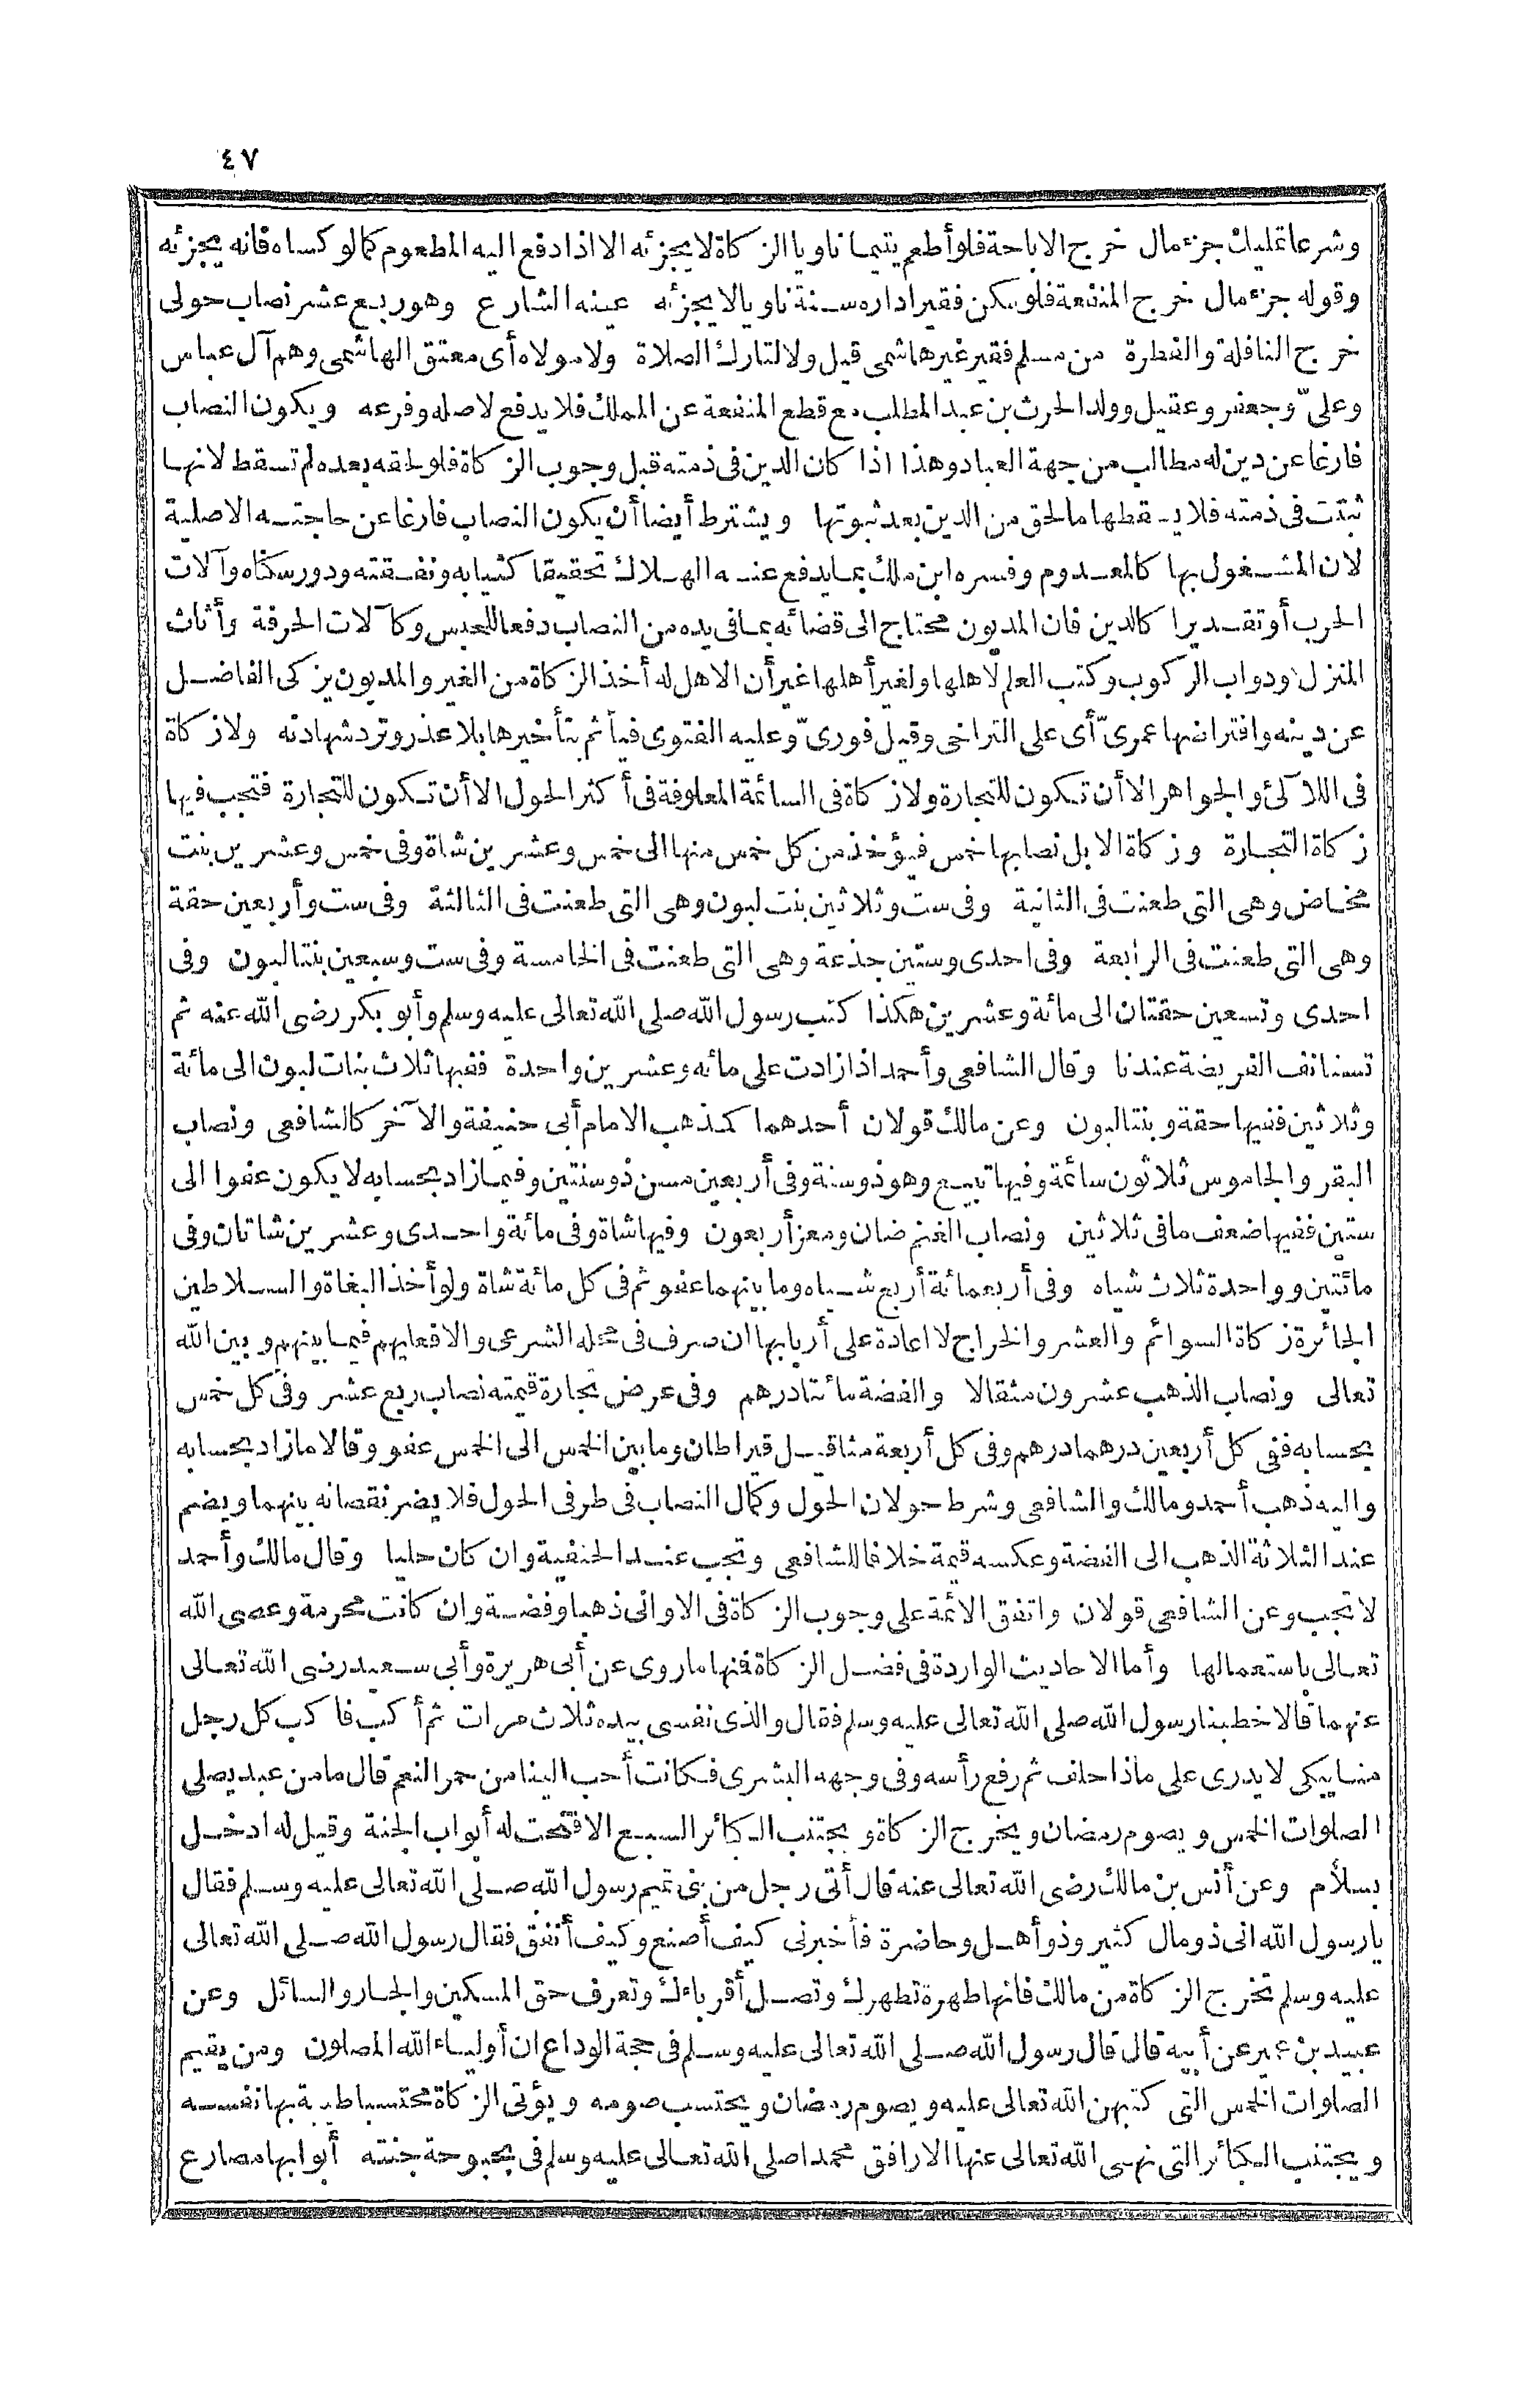 ٤٧
وشرعا تمليك جزء مال خرج الاباحة فلو أطعم يتيما ناويا الزكاة لا يجزئه الا اذا دفع اليه المطعوم كما لو كساه فانه يجزئه
وقوله جزء مال خرج المنفعة فلو سكن فقيرا داره سنة ناويا لا يجزئه عينه الشارع وهو ربع عشر نصاب حولى
خرج النافلة والفطرة من مسلم فقير غير هاشمى قيل ولا لتارك الصلاة ولا مولاه أى معتق الهاشمى وهم آل عباس
وعلىّ وجعفر وعقيل وولد الحرث بن عبد المطلب مع قطع المنفعة عن المملك فلا يدفع لاصله وفرعه ويكون النصاب
فارغا عن دين له مطالب من جهة العباد وهذا اذا كان الدين فى ذمته قبل وجوب الزكاة فلو لحقه بعده لم تسقط لانها
ثبتت فى ذمته فلا يسقطها ما لحق من الدين بعد ثبوتها ويشترط أيضا أن يكون النصاب فارغا عن حاجته الاصلية
لان المشغول بها كالمعدوم وفسره ابن ملك بما يدفع عنه الهلاك تحقيقا كثيابه ونفقته ودور سكناه وآلات
الحرب أو تقديرا كالدين فان المديون محتاج الى قضائه بما فى يده من النصاب دفعا للحبس وكآلات الحرفة وأثاث
المنزل ودواب الركوب وكتب العلم لاهلها او لغير أهلها غير أن الاهل له أخذ الزكاة من الغير والمديون يزكى الفاضل
عن دينه وافتراضها عمرىّ أى على التراخى وقيل فورىّ وعليه الفتوى فيأثم بتأخيرها بلا عذر وترد شهادته ولا زكاة
فى اللآلئ والجواهر الا أن تكون للتجارة ولا زكاة فى السائمة المعلوفة فى أكثر الحول الا أن تكون للتجارة فتجب فيها
زكاة التجارة وزكاة الابل نصابها خمس فيؤخذ من كل خمس منها الى خمس وعشرين شاة وفى خمس وعشرين بنت
مخاض وهى التى طعنت فى الثانية وفى ست وثلاثين بنت لبون وهى التى طعنت فى الثالثة وفى ست وأربعين حقة
وهى التى طعنت فى الرابعة وفى احدى وستين جذعة وهى التى طعنت فى الخامسة وفى ست وسبعين بنتا لبون وفى
احدى وتسعين حقتان الى مائة وعشرين هكذا كتب رسول الله صلى الله تعالى عليه وسلم وأبو بكر رضى الله عنه ثم
تستانف الفريضة عندنا وقال الشافعى وأحمد اذا زادت على مائه وعشرين واحدة ففيها ثلاث بنات لبون الى مائة
وثلاثين ففيها حقة وبنتا لبون وعن مالك قولان أحدهما كمذهب الامام أبى حنيفة والآخر كالشافعى ونصاب
البقر والجاموس ثلاثون سائمة وفيها تبيع وهو ذو سنة وفى أربعين مسن ذو سنتين وفيما زاد بحسابه لا يكون عفوا الى
ستين ففيها ضعف ما فى ثلاثين ونصاب الغنم ضان ومعز أربعون وفيها شاة وفى مائة واحدى وعشرين شاتان وفى
مائتين وواحدة ثلاث شياه وفى أربعمائة أربع شياه وما بينهما عفو ثم فى كل مائة شاة ولو أخذ البغاة والسلاطين
الجائرة زكاة السوائم والعشر والخراج لا اعادة على أربابها ان صرف فى محله الشرعى والا فعليهم فيما بينهم وبين الله
تعالى ونصاب الذهب عشرون مثقالا والفضة مائتا درهم وفى عرض تجارة قيمته نصاب ربع عشر وفى كل خمس
بحسابه ففى كل أربعين درهما درهم وفى كل أربعة مثاقيل قيراطان وما بين الخمس الى الخمس عفو وقالا ما زاد بحسابه
واليه ذهب أحمد ومالك والشافعى وشرط حولان الحول وكمال النصاب فى طرفى الحول فلا يضر نقصانه بينهما ويضم
عند الثلاثة الذهب الى الفضة وعكسه قيمة خلافا للشافعى وتجب عند الحنفية وان كان حليا وقال مالك وأحمد
لا تجب وعن الشافعى قولان واتفق الائمة على وجوب الزكاة فى الاوانى ذهبا وفضة وان كانت محرمة وعصى الله
تعالى باستعمالها وأما الاحاديث الواردة فى فضل الزكاة فمنها ما روى عن أبى هريرة وأبى سعيد رضى الله تعالى
عنهما قالا خطبنا رسول الله صلى الله تعالى عليه وسلم فقال والذى نفسى بيده ثلاث مرات ثم أكب فاكب كل رجل
منا يبكى لا يدرى على ماذا حلف ثم رفع رأسه وفى وجهه البشرى فكانت أحب الينا من حمر النعم قال ما من عبد يصلى
الصلوات الخمس ويصوم رمضان ويخرج الزكاة ويجتنب الكبائر السبع الا فتحت له أبواب الجنة وقيل له ادخل
بسلام وعن أنس بن مالك رضى الله تعالى عنه قال أتى رجل من بنى تميم رسول الله صلى الله تعالى عليه وسلم فقال
يا رسول الله انى ذو مال كثير وذو أهل وحاضرة فأخبرنى كيف أصنع وكيف أنفق فقال رسول الله صلى الله تعالى
عليه وسلم تخرج الزكاة من مالك فانها طهرة تطهرك وتصل أقرباءك وتعرف حق المسكين والجار والسائل وعن
عبيد بن عمير عن أبيه قال قال رسول الله صلى الله تعالى عليه وسلم فى حجة الوداع ان أولياء الله المصلون ومن يقيم
الصلوات الخمس التى كتبهن الله تعالى عليه ويصوم رمضان ويحتسب صومه ويؤتى الزكاة محتسبا طيبة بها نفسه
ويجتنب الكبائر التى نهى الله تعالى عنها الا رافق محمدا صلى الله تعالى عليه وسلم فى بحبوحة جنته أبوابها مصارع